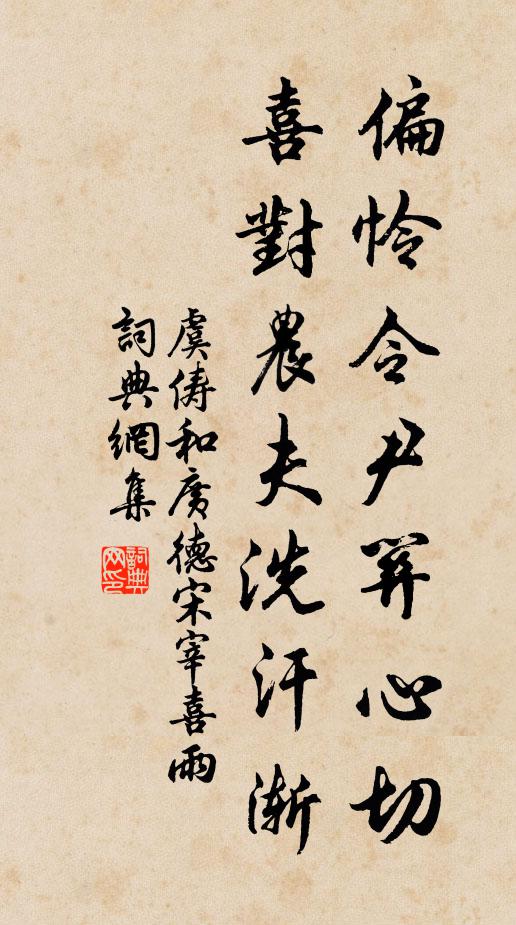 偏怜令尹关心切
喜對農夫洗汗漸
虞俦和廣德宋宰喜雨
詞典網集
詞典網印